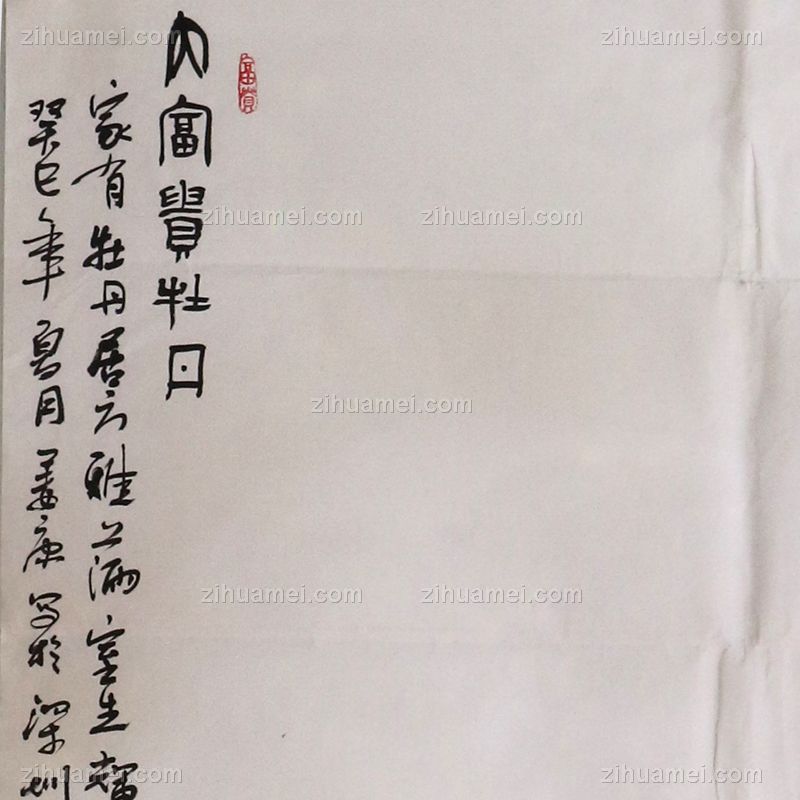 富貴
大富貴牡丹
家有牡丹居方雅满室生
癸巳年夏月姜康写於深圳
zihuamei.com zihuamei.com zihuamei.com
zihuamei.com zihuamei.com
zihuamei.com
zihuamei.com zihuamei.com
zihuamei.com zihuamei.com zihuamei.com